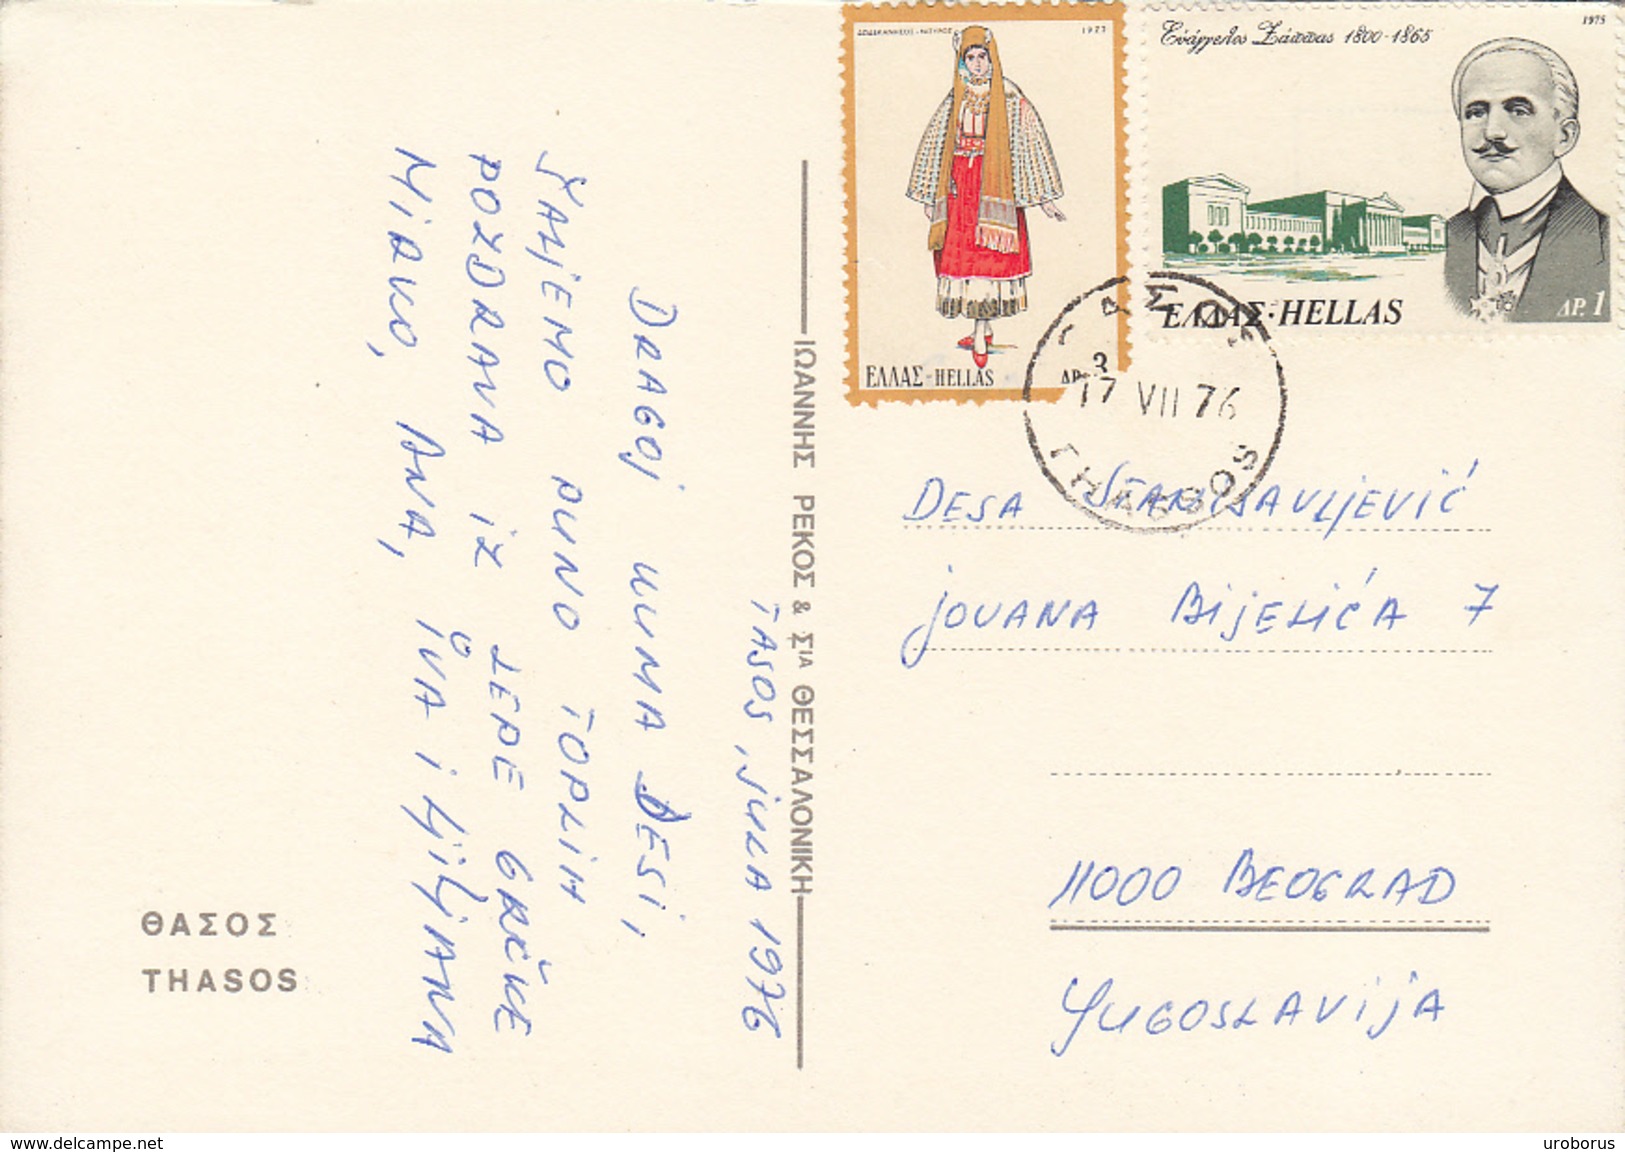 ΔΩΔΕΚΑΝΗΣΟΣ-ΝΙΣΥΡΟΣ 1972
ΕΛΛΑΣ-HELLAS ΔΡ. 3
Εὐάγγελος Ζάππας 1800-1865
1975
ΕΛΛΑΣ·HELLAS
ΔΡ. 1
17 VII 76
THASSOS
TASOS, JULA 1976
DRAGOJ KUMA DESI,
ŠALJEMO PUNO TOPLIH
POZDRAVA IZ LEPE GRČKE
MIRKO, ANA, IVA I LJILJANA
ΙΩΑΝΝΗΣ ΡΕΚΟΣ & ΣΙΑ ΘΕΣΣΑΛΟΝΙΚΗ
ΘΑΣΟΣ
THASOS
DESA STANISAVLJEVIĆ
JOVANA BIJELIĆA 7
11000 BEOGRAD
YUGOSLAVIJA
www.delcampe.net
uroborus